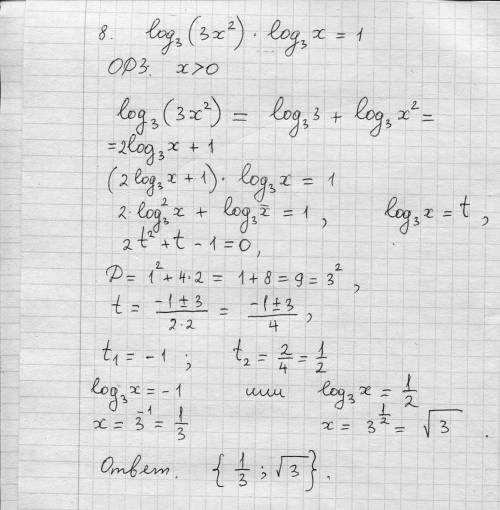 8. log₃(3x²) · log₃x = 1
ОРЗ: x>0
log₃(3x²) = log₃3 + log₃x² =
=2log₃x + 1
(2log₃x + 1) · log₃x = 1
2·log₃²x + log₃x = 1, log₃x = t,
2t² + t - 1 = 0,
D = 1² + 4·2 = 1 + 8 = 9 = 3²,
t = (-1 ± 3)/(2·2) = (-1 ± 3)/4,
t₁ = -1; t₂ = 2/4 = 1/2
log₃x = -1 или log₃x = 1/2
x = 3⁻¹ = 1/3 x = 3^(1/2) = √3.
Ответ. {1/3; √3}.